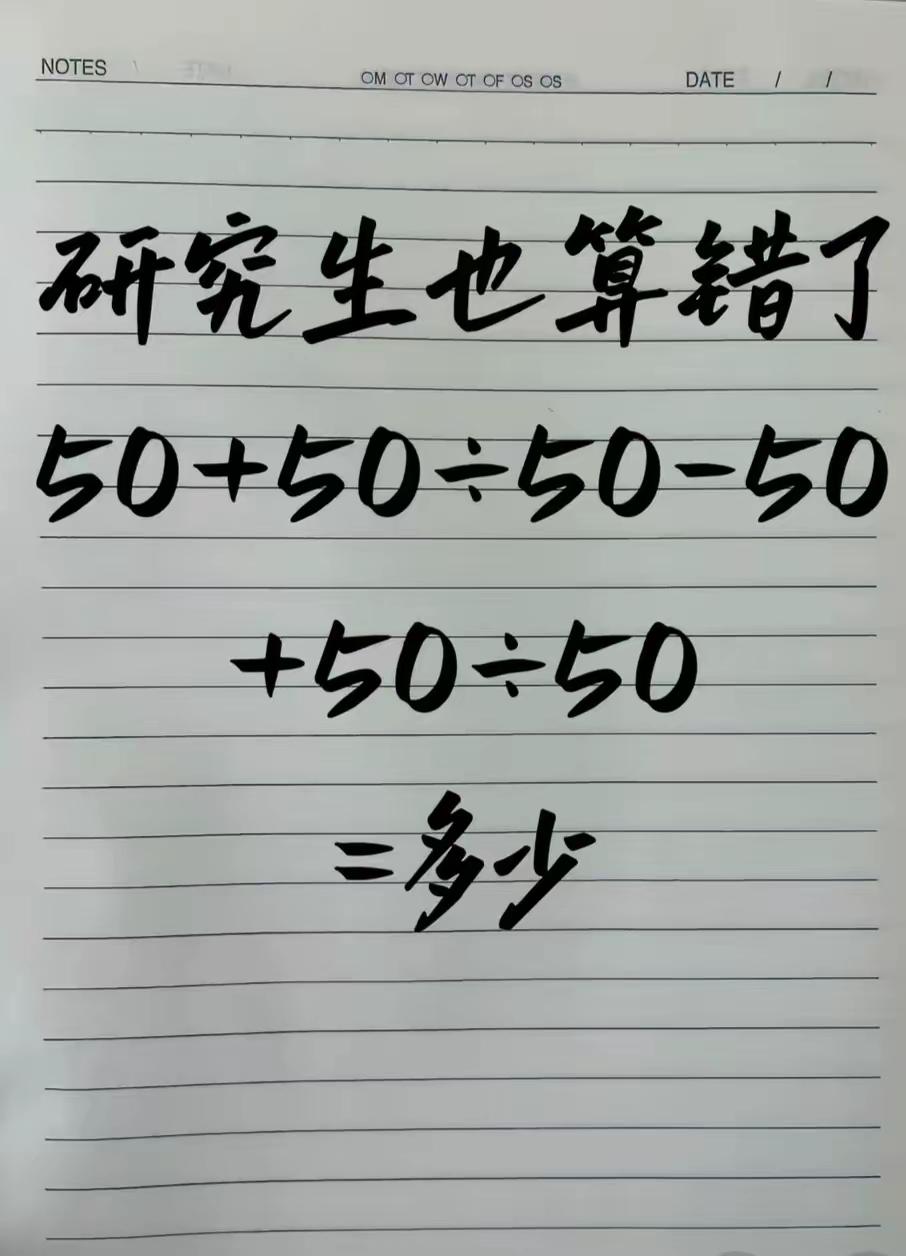 NOTES
OM OT OW OT OF OS OS
DATE / /
研究生也算错了
50+50÷50-50
+50÷50
=多少